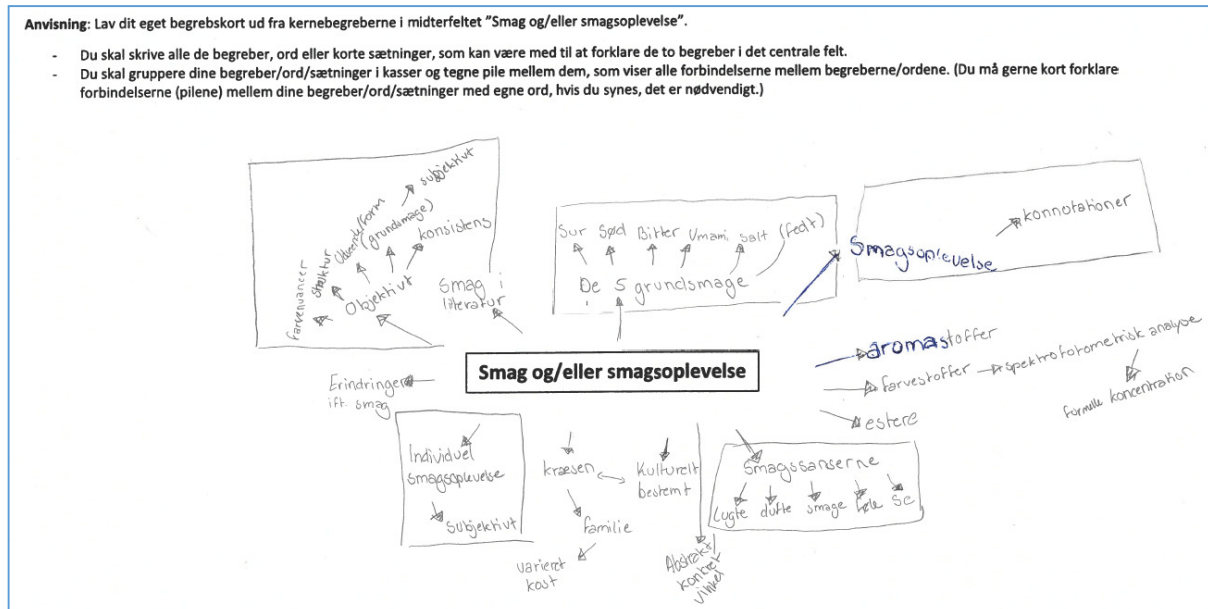 Anvisning: Lav dit eget begrebskort ud fra kernebegreberne i midterfeltet ”Smag og/eller smagsoplevelse”.
- Du skal skrive alle de begreber, ord eller korte sætninger, som kan være med til at forklare de to begreber i det centrale felt.
- Du skal gruppere dine begreber/ord/sætninger i kasser og tegne pile mellem dem, som viser alle forbindelserne mellem begreberne/ordene. (Du må gerne kort forklare
forbindelserne (pilene) mellem dine begreber/ord/sætninger med egne ord, hvis du synes, det er nødvendigt.)
farvenuancer
struktur
Udseende/form
(grundsmage)
subjektivt
konsistens
Objektivt
Smag i
literatur
Sur Sød Bitter Umami salt (fedt)
De 5 grundsmage
konnotationer
Smagsoplevelse
aromastoffer
farvestoffer
spektrofotometrisk analyse
formelle koncentration
estere
Smag og/eller smagsoplevelse
Erindringer
ift. smag
Individuel
smagsoplevelse
subjektivt
kræsen
familie
varieret
kost
Kulturelt
bestemt
Abstrakt/
konkret
vinkel
Smagssanserne
Lugte dufte smage føle se